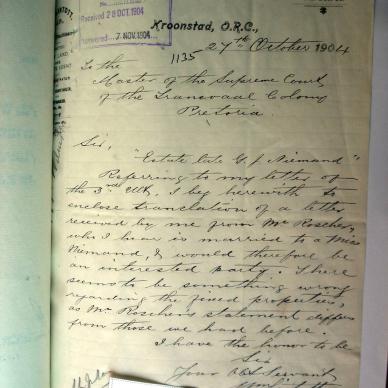 Received 28 OCT. 1904
7 NOV. 1904
Kroonstad, O.R.C.,
27th October 1904
1135
To the
Master of the Supreme Court
of the Transvaal Colony
Pretoria
Sir,
"Estate late G. J. Niemand"
Referring to my letter of
the 3rd Ult, I beg herewith to
enclose translation of a letter
received by me from Mr Roscher,
who I hear is married to a Miss
Niemand, & would therefore be
an interested party. There
seems to be something wrong
regarding the fixed properties,
as Mr Roscher's statement differs
from those we had before.
I have the honor to be
Sir
Your Obt Servant